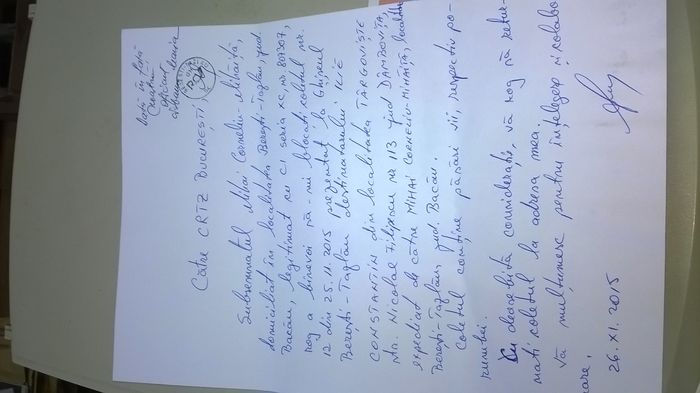 Dată în fața
oficiant
CĂTRE CRTZ BUCUREȘTI,
Subsemnatul Mihai Corneliu-Mihăiță,
domiciliat în localitatea Berești-Tazlău, jud.
Bacău, legitimat cu CI seria XC, nr. 807307,
rog a binevoi să-mi blocați coletul nr.
12 din 25.11.2015 prezentat la Ghișeul
Berești-Tazlău destinatarului ILIE
CONSTANTIN din localitatea TÂRGOVIȘTE
str. Nicolae Filipescu nr 113 jud DÂMBOVIȚA,
expediat de către MIHAI CORNELIU-MIHĂIȚĂ, localit
Berești-Tazlău, jud. Bacău.
Coletul conține păsări vii, respectiv po-
rumbei.
Cu deosebită considerație, vă rog să retur-
nați coletul la adresa mea.
Vă mulțumesc pentru înțelegere și colabo-
rare.
26.XI.2015